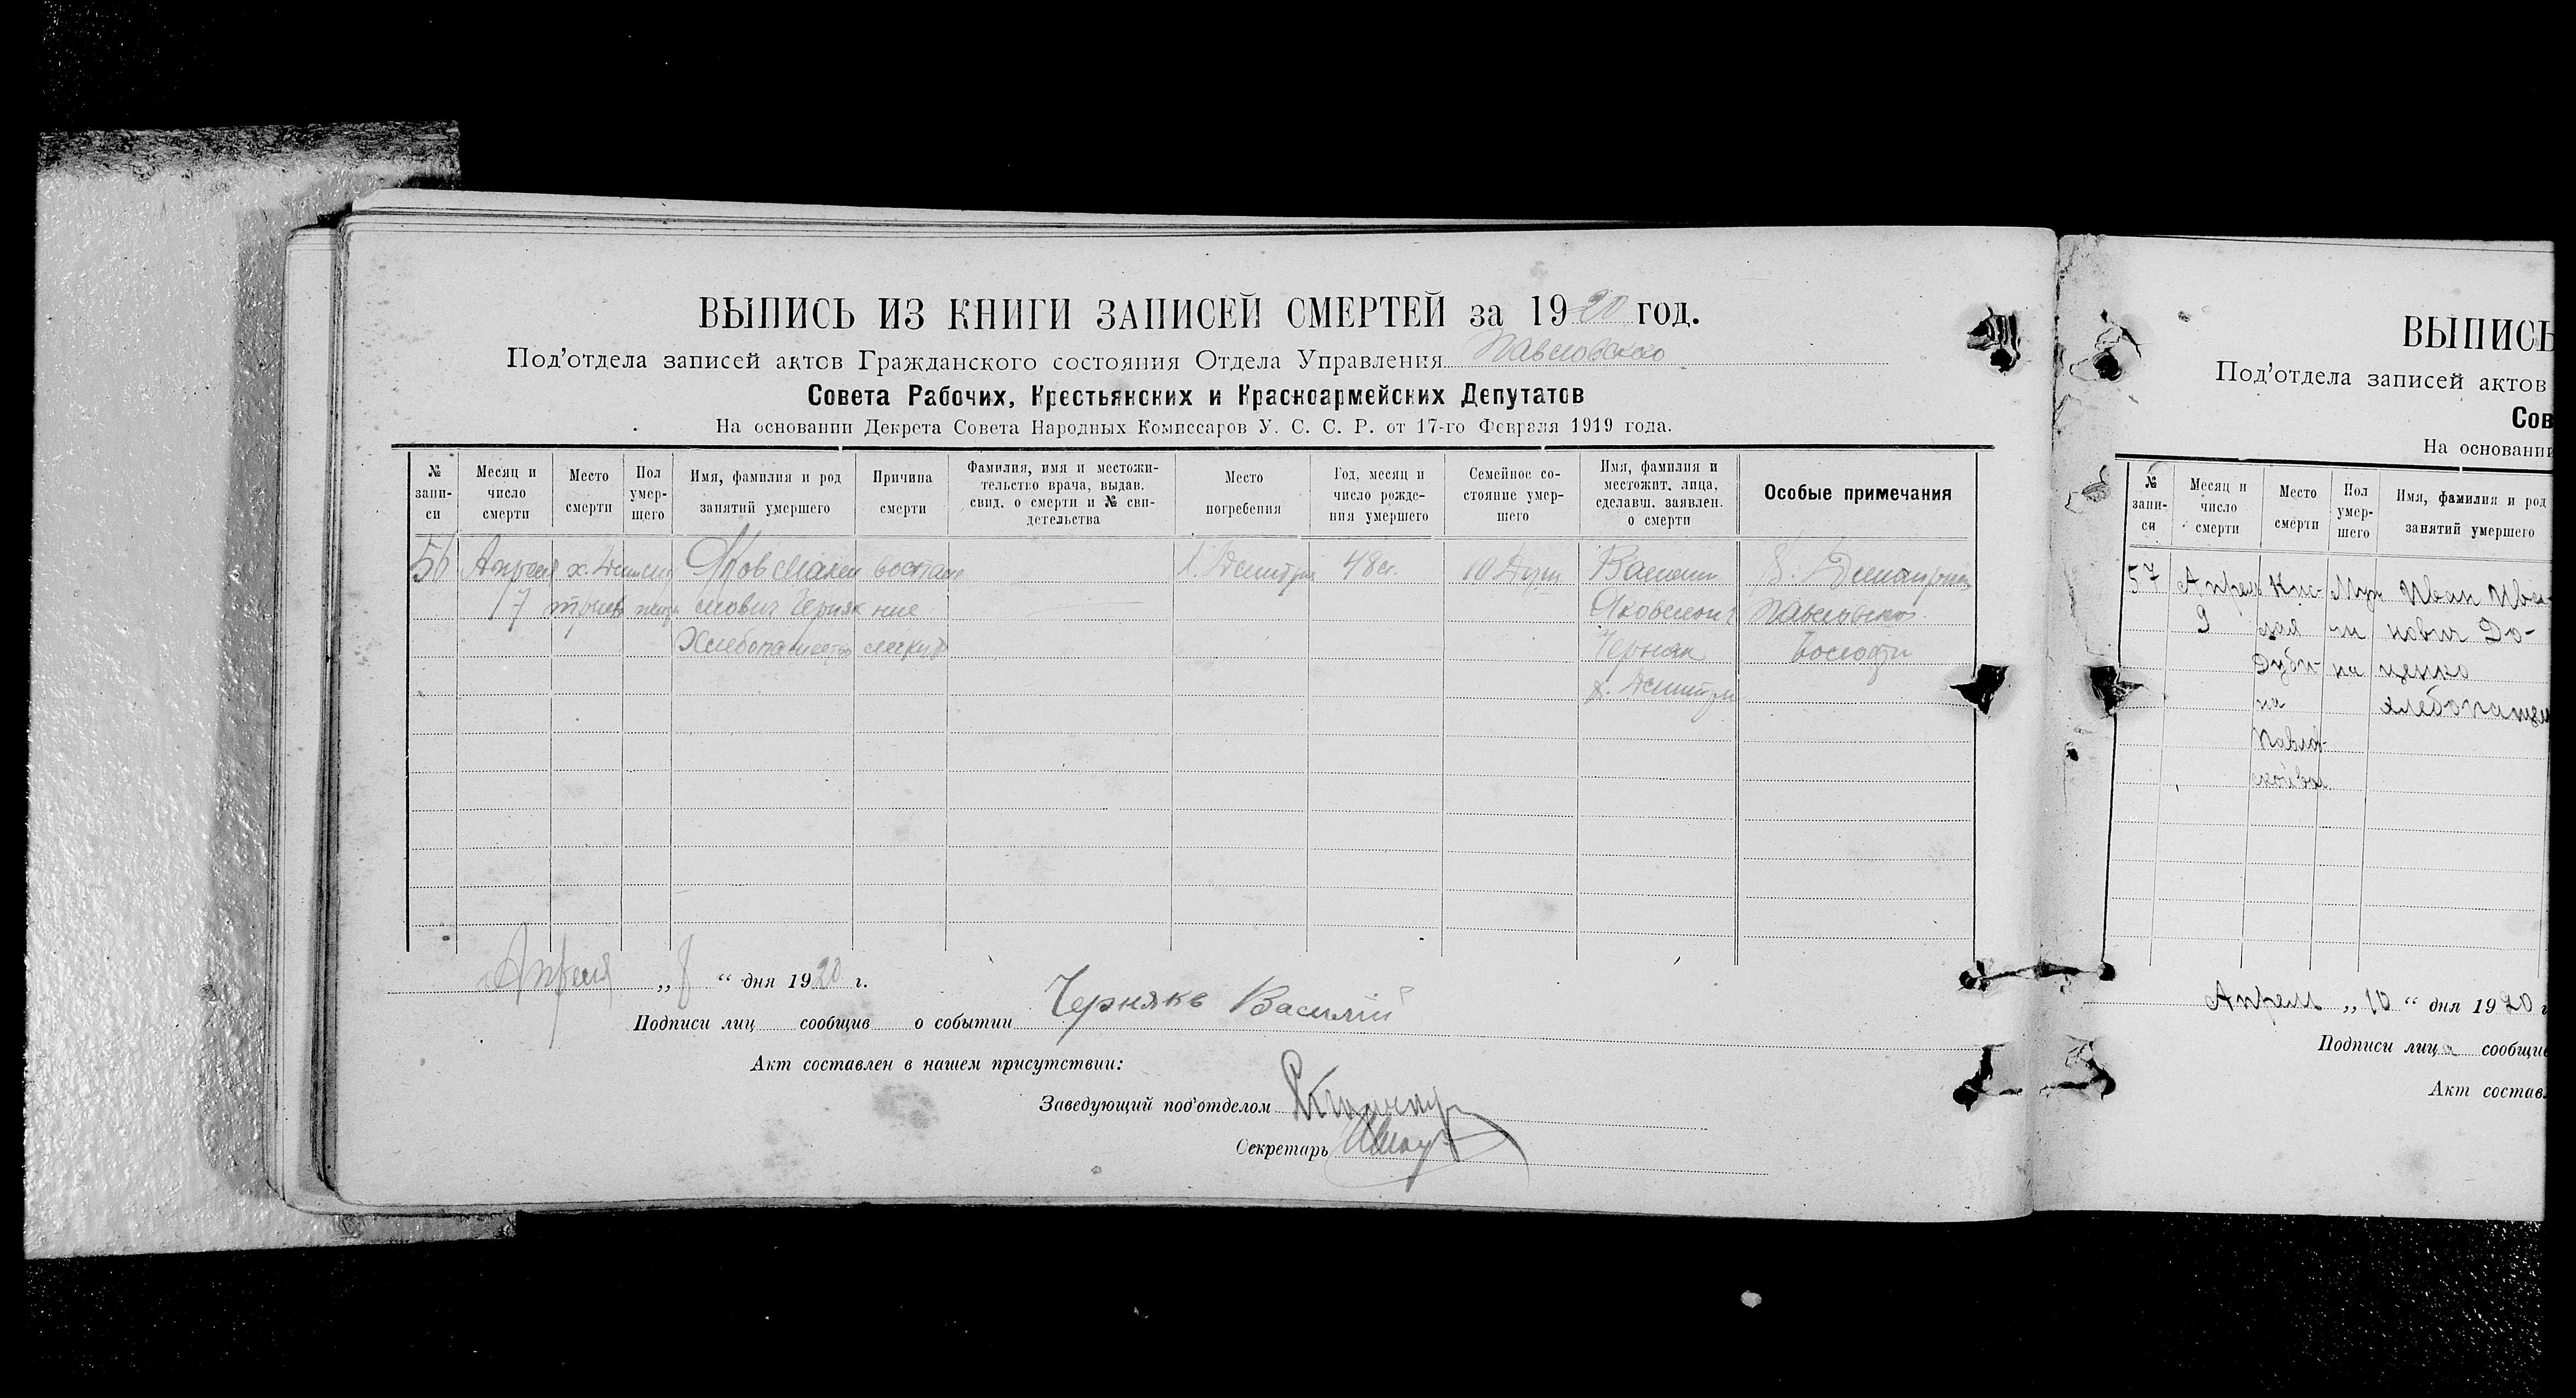 ВЫПИСЬ ИЗ КНИГИ ЗАПИСЕЙ СМЕРТЕЙ за 1920 год.
Под'отдела записей актов Гражданского состояния Отдела Управления Павловского
Совета Рабочих, Крестьянских и Красноармейских Депутатов
На основании Декрета Совета Народных Комиссаров У. С. С. Р. от 17-го Февраля 1919 года.
№ запи-си
Месяц и число смерти
Место смерти
Пол умер-щего
Имя, фамилия и род занятий умершего
Причина смерти
Фамилия, имя и местожи-тельство врача, выдав. свид. о смерти и № сви-детельства
Место погребения
Год, месяц и число рожде-ния умершего
Семейное со-стояние умер-шего
Имя, фамилия и местожит. лица, сделавш. заявлен. о смерти
Особые примечания
56
Апреля
7
Яков
Черняк
воспале
ние
легких
48 л.
10 Душ
Василий
Яковлевич
Черняк
Павловской
Волости
Апреля „ 8 “ дня 1920 г.
Подписи лиц сообщив о событии Чернякъ Василий
Акт составлен в нашем присутствии:
Заведующий под'отделом
Секретарь
ВЫПИСЬ
Под'отдела записей актов
Сов
На основании
№ запи-си
Месяц и число смерти
Место смерти
Пол умер-шего
Имя, фамилия и род
занятий умершего
57
Апреля
9
Кис-
лая
Дуби-
на
Павло-
ской вол
Муж
чи
на
Иван Ива-
нович До-
ценко
хлебопашец
Апреля „ 10 “ дня 1920 г
Подписи лица сообщив
Акт составл